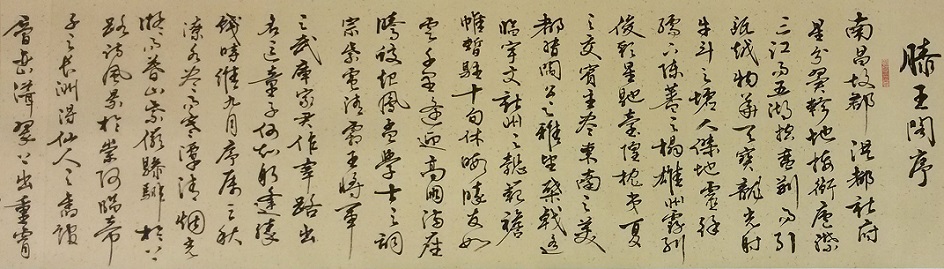 滕王閣序
南昌故郡 洪都新府
星分翼軫地接衡廬襟
三江而五湖控蠻荊而引
甌越物華天寶龍光射
牛斗之墟人傑地靈徐
孺下陳蕃之榻雄州霧列
俊彩星馳臺隍枕夷夏
之交賓主盡東南之美
都督閻公之雅望棨戟遙
臨宇文新州之懿範襜
帷暫駐十旬休暇勝友如
雲千里逢迎高朋滿座
騰蛟起鳳孟學士之詞
宗紫電清霜王將軍
之武庫家君作宰路出
名區童子何知躬逢勝
餞時維九月序屬三秋
潦水盡而寒潭清煙光
凝而暮山紫儼驂騑於上
路訪風景於崇阿臨帝
子之長洲得仙人之舊館
層巒聳翠上出重霄